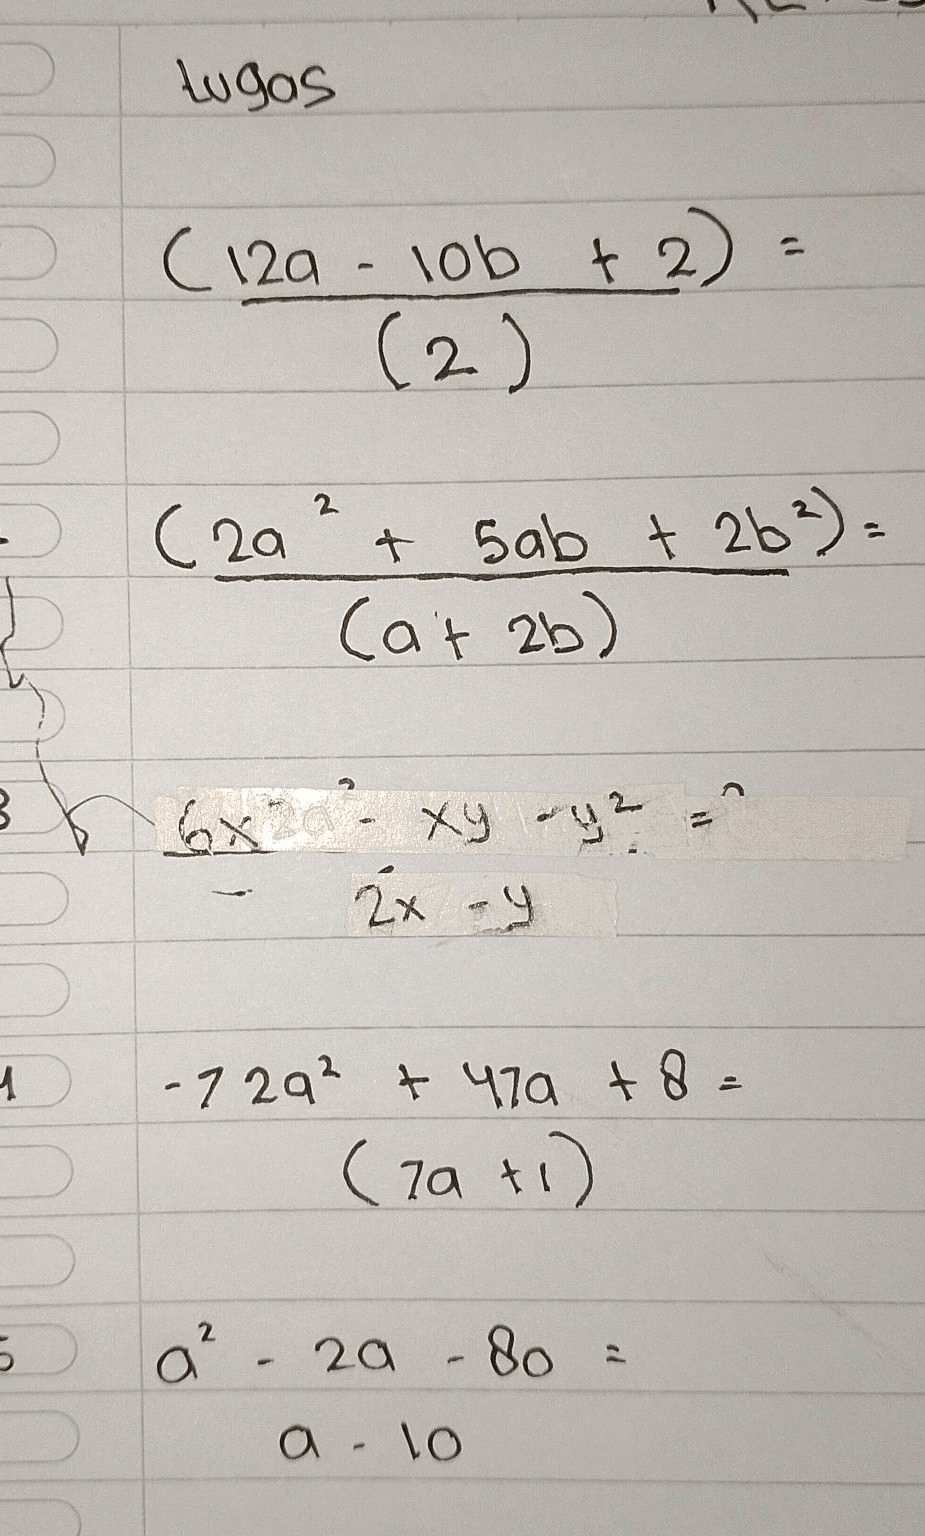 tugas
(12a - 10b + 2) =
(2)
(2a² + 5ab + 2b²) =
(a + 2b)
3 6x² - xy - y² =
2x - y
-72a² + 47a + 8 =
(7a + 1)
5 a² - 2a - 80 =
a - 10